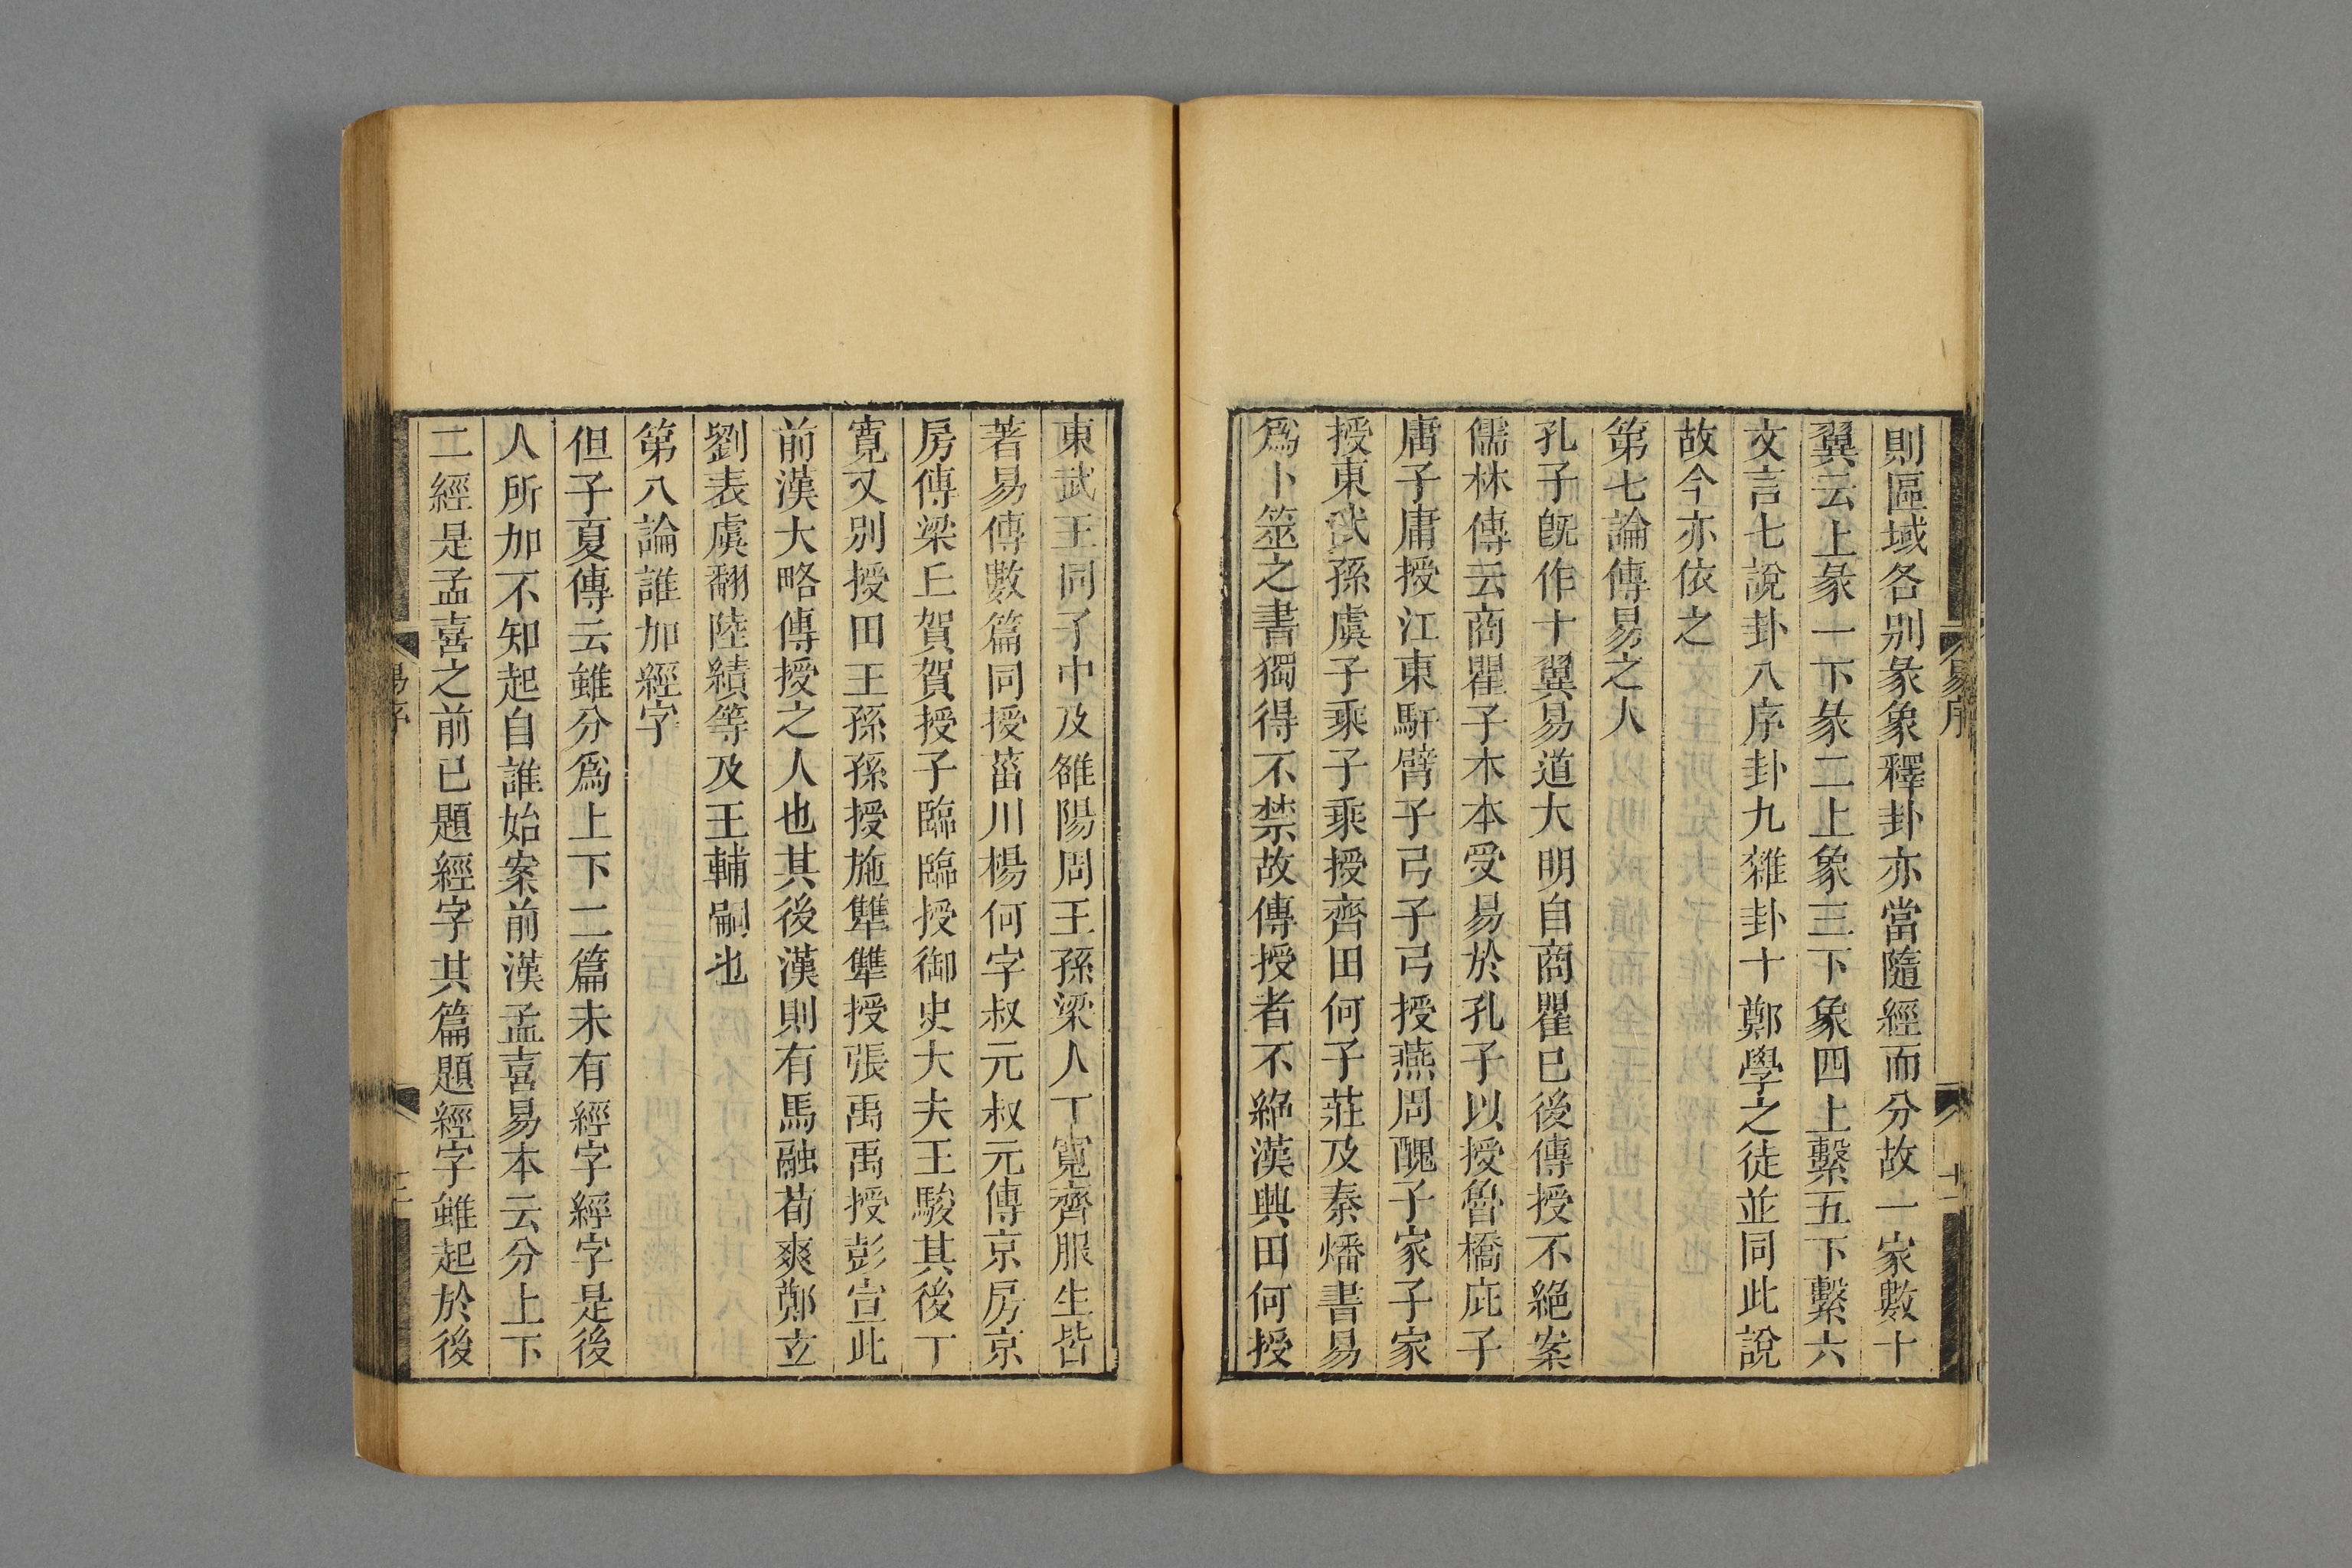 易序
十二
則區域各別彖象釋卦亦當隨經而分故一家數十
翼云上彖一下彖二上象三下象四上繫五下繫六
文言七說卦八序卦九雜卦十鄭學之徒並同此說
故今亦依之
第七論傳易之人
孔子旣作十翼易道大明自商瞿已後傳授不絶案
儒林傳云商瞿子木本受易於孔子以授魯橋庇子
庸子庸授江東馯臂子弓子弓授燕周醜子家子家
授東武孫虞子乘子乘授齊田何子莊及秦燔書易
爲卜筮之書獨得不禁故傳授者不絶漢興田何授
東武王同子中及雒陽周王孫梁人丁寬齊服生皆
著易傳數篇同授菑川楊何字叔元叔元傳京房京
房傳梁丘賀賀授子臨臨授御史大夫王駿其後丁
寬又別授田王孫孫授施犨犨授張禹禹授彭宣此
前漢大略傳授之人也其後漢則有馬融荀爽鄭玄
劉表虞翻陸績等及王輔嗣也
第八論誰加經字
但子夏傳云雖分爲上下二篇未有經字經字是後
人所加不知起自誰始案前漢孟喜易本云分上下
二經是孟喜之前已題經字其篇題經字雖起於後
易序